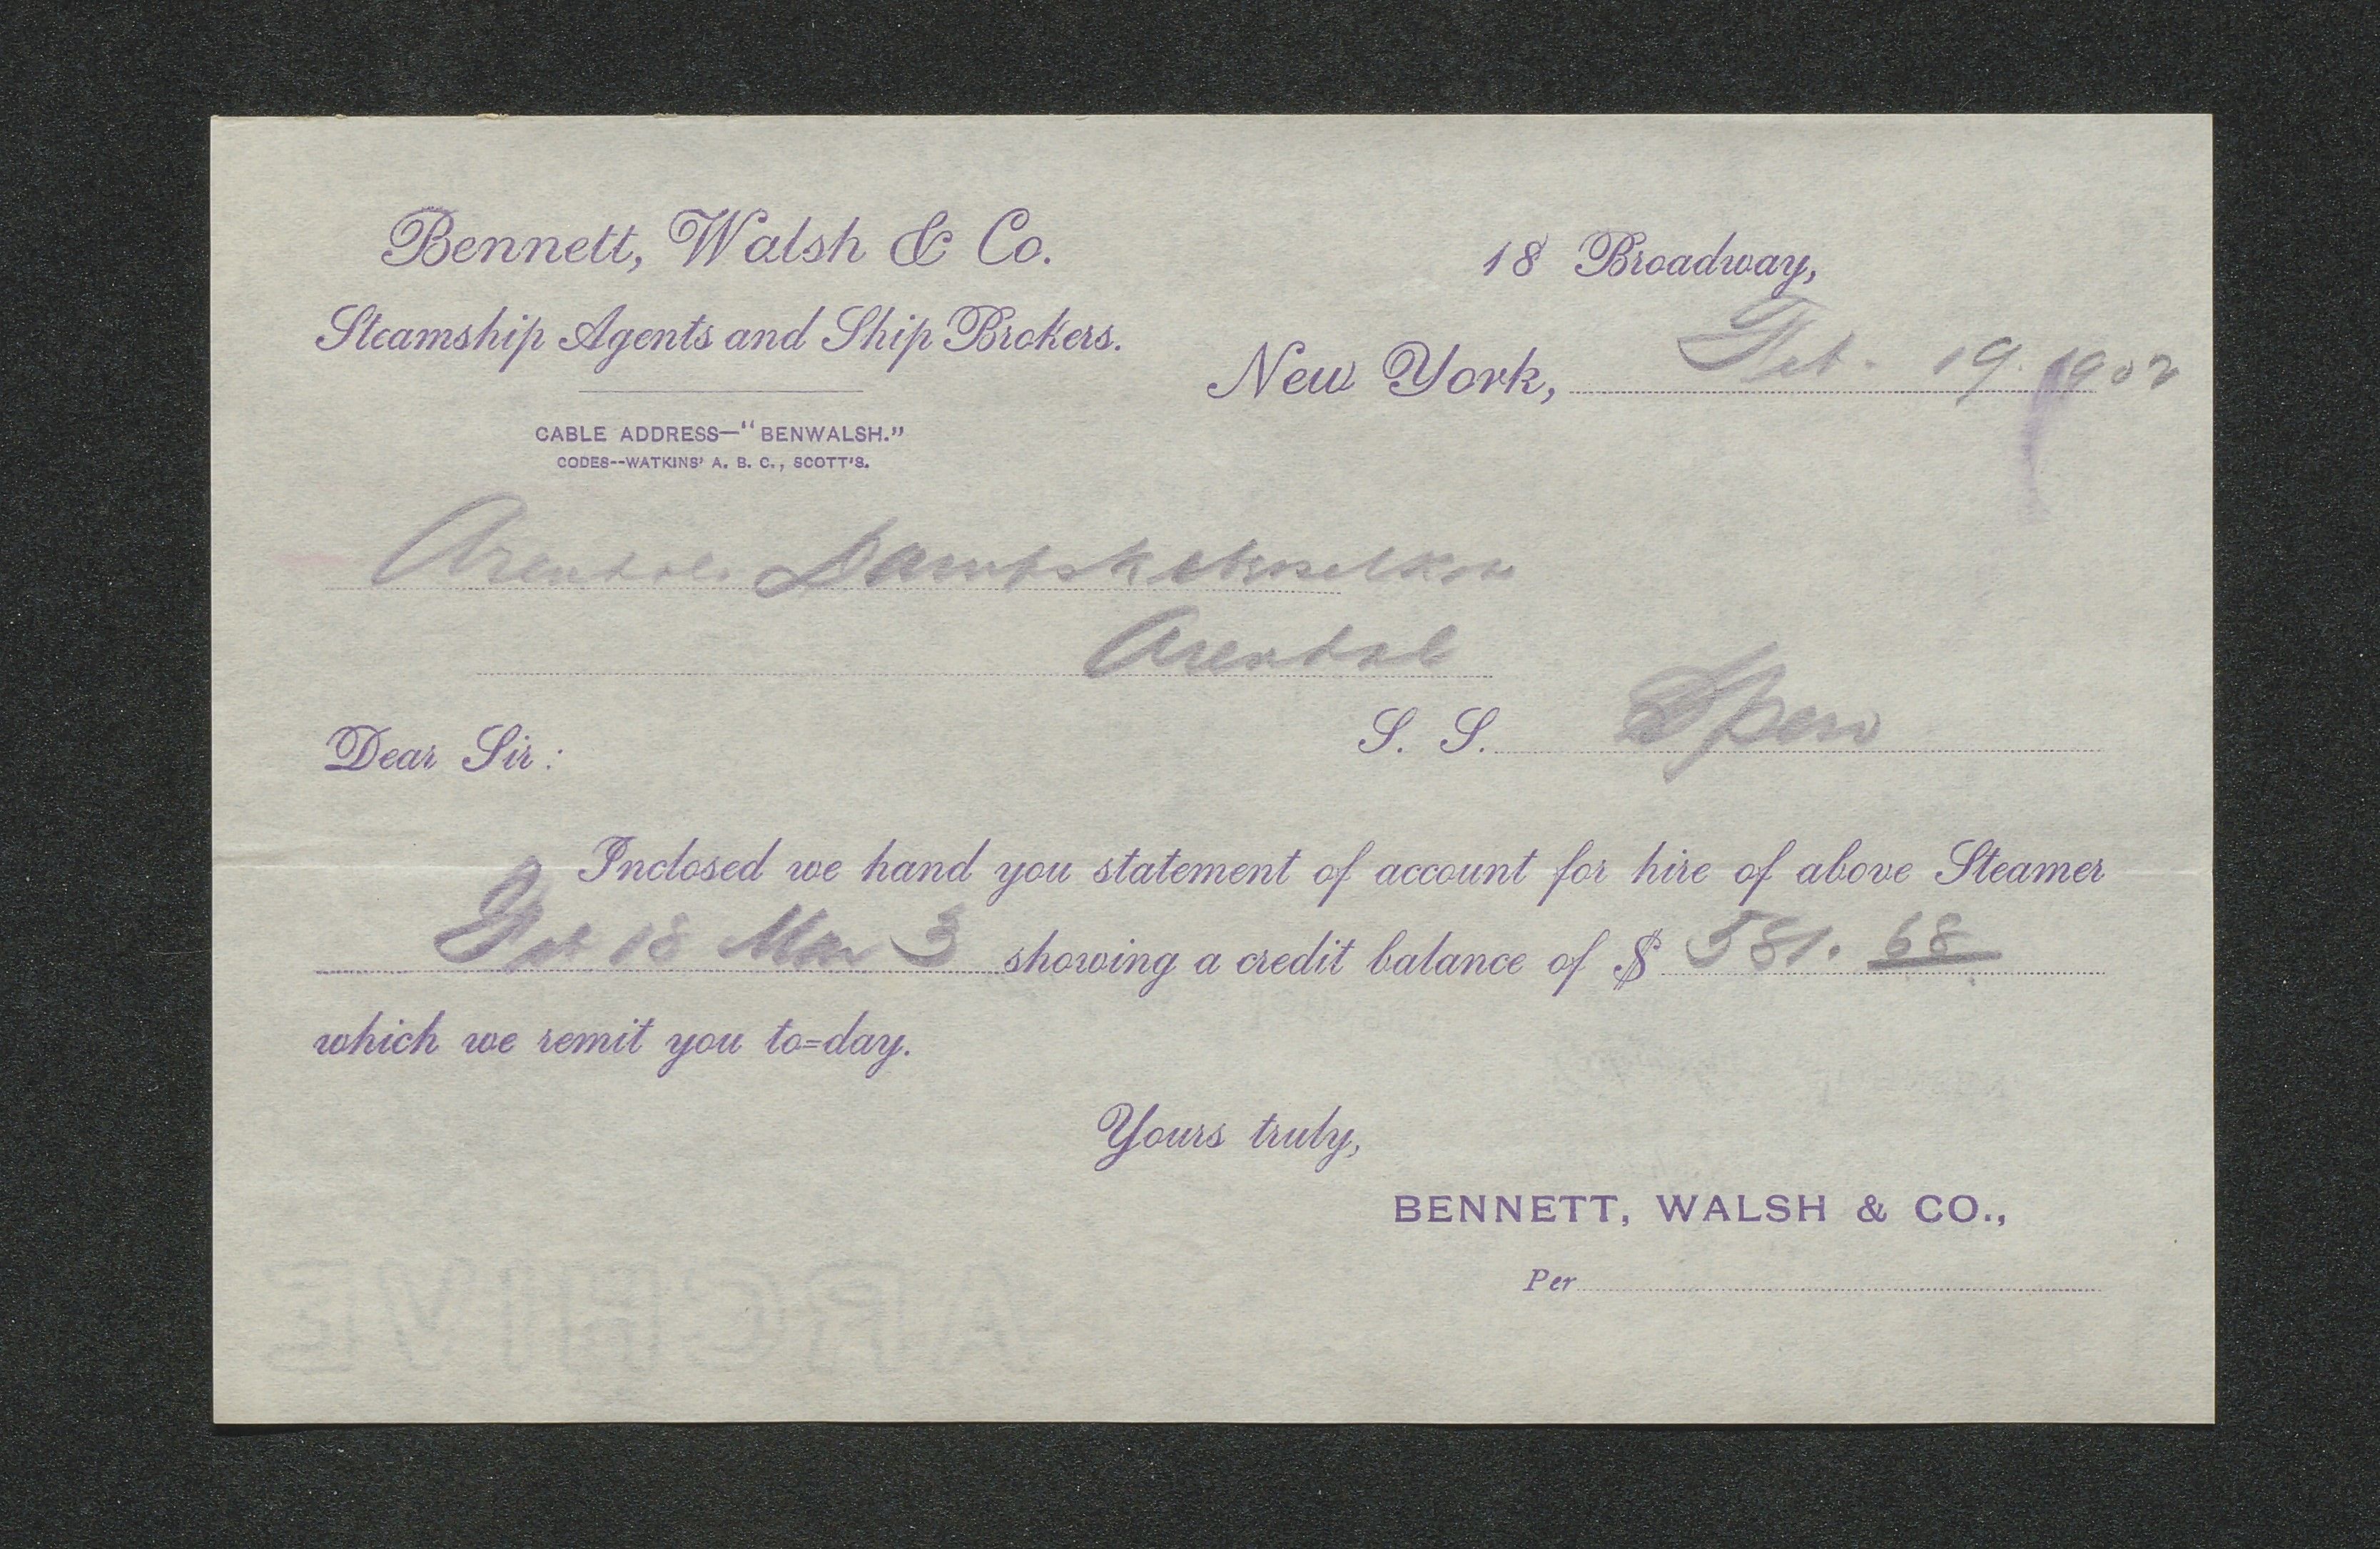 Bennett, Walsh & Co.
Steamship Agents and Ship Brokers.
CABLE ADDRESS—"BENWALSH."
CODES--WATKINS' A. B. C., SCOTT'S.
18 Broadway,
New York, Feb. 19. 1902
Arendals
Arendal
S. S. Spero
Dear Sir:
Inclosed we hand you statement of account for hire of above Steamer
Feb 18 Mar 3 showing a credit balance of $ 581.68
which we remit you to=day.
Yours truly,
BENNETT, WALSH & CO.,
Per
ARCHIVE